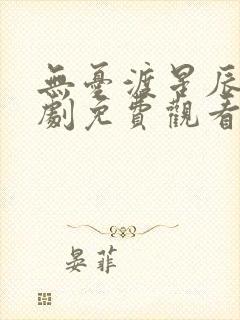 無憂渡星辰
劇免費觀看
晏菲